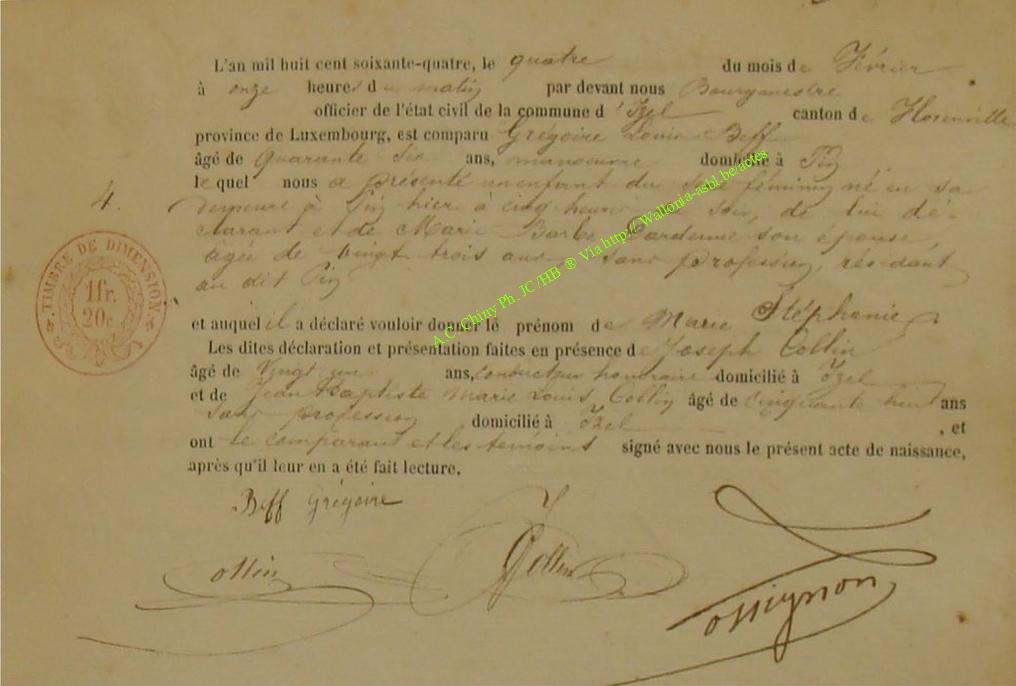 L'an mil huit cent soixante-quatre, le quatre du mois de Février
à onze heures du matin par devant nous Bourgmestre
officier de l'état civil de la commune d'Izel canton de
province de Luxembourg, est comparu Grégoire Louis Beff
âgé de Quarante Six ans, manoeuvre domicilié à Pin
lequel nous a présenté un enfant du Sexe féminin né en sa
4. demeure à Pin hier à cinq heures soir, de lui dé-
clarant et de Marie Barbe son épouse,
agée de Vingt trois ans, sans profession, résidant
au dit Pin
TIMBRE DE DIMENSION
1fr.
20c.
et auquel il a déclaré vouloir donner le prénom de Marie Stéphanie
Les dites déclaration et présentation faites en présence de Joseph Collin
âgé de Vingt un ans, conducteur honoraire domicilié à Izel
et de Jean Baptiste Marie Louis Collin âgé de Cinquante huit ans
Sans profession domicilié à Izel, et
ont le comparant et les témoins signé avec nous le présent acte de naissance,
après qu'il leur en a été fait lecture.
Beff Grégoire
Collin
Collin
A.C. Chiny Ph. JC /HB ® Via http://Wallonia-asbl.be/actes